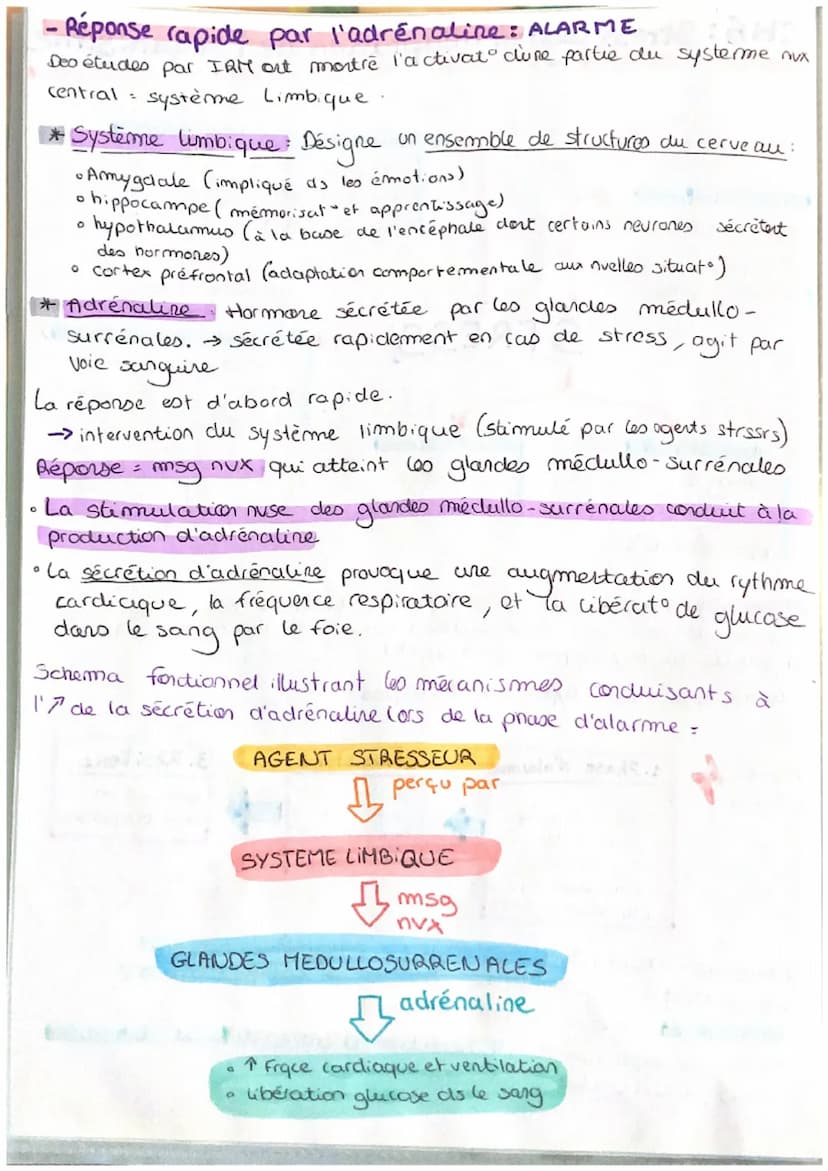 - Réponse rapide par l'adrénaline : ALARME
Des études par IRM ont montré l'activat° d'une partie du système nvx
central = système Limbique.
* Système limbique : Désigne un ensemble de structures du cerveau :
° Amygdale (impliqué ds les émotions)
° hippocampe (mémorisat° et apprentissage)
° hypothalamus (à la base de l'encéphale dont certains neurones sécrètent
des hormones)
° cortex préfrontal (adaptation comportementale aux nvelles situat°)
* Adrénaline : Hormone sécrétée par les glandes médullo-
surrénales. → sécrétée rapidement en cas de stress, agit par
voie sanguine
La réponse est d'abord rapide.
→ intervention du système limbique (stimulé par les agents strssrs)
Réponse = msg nvx qui atteint les glandes médullo-surrénales
• La stimulation nvse des glandes médullo-surrénales conduit à la
production d'adrénaline
• La sécrétion d'adrénaline provoque une augmentation du rythme
cardiaque, la fréquence respiratoire, et la libérat° de glucose
dans le sang par le foie.
Schema fonctionnel illustrant les mécanismes conduisants à
l'↗ de la sécrétion d'adrénaline lors de la phase d'alarme =
AGENT STRESSEUR
perçu par
SYSTEME LIMBIQUE
msg
nvx
GLANDES MEDULLOSURRENALES
adrénaline
° ↑ Frqce cardiaque et ventilation
° libération glucose ds le sang